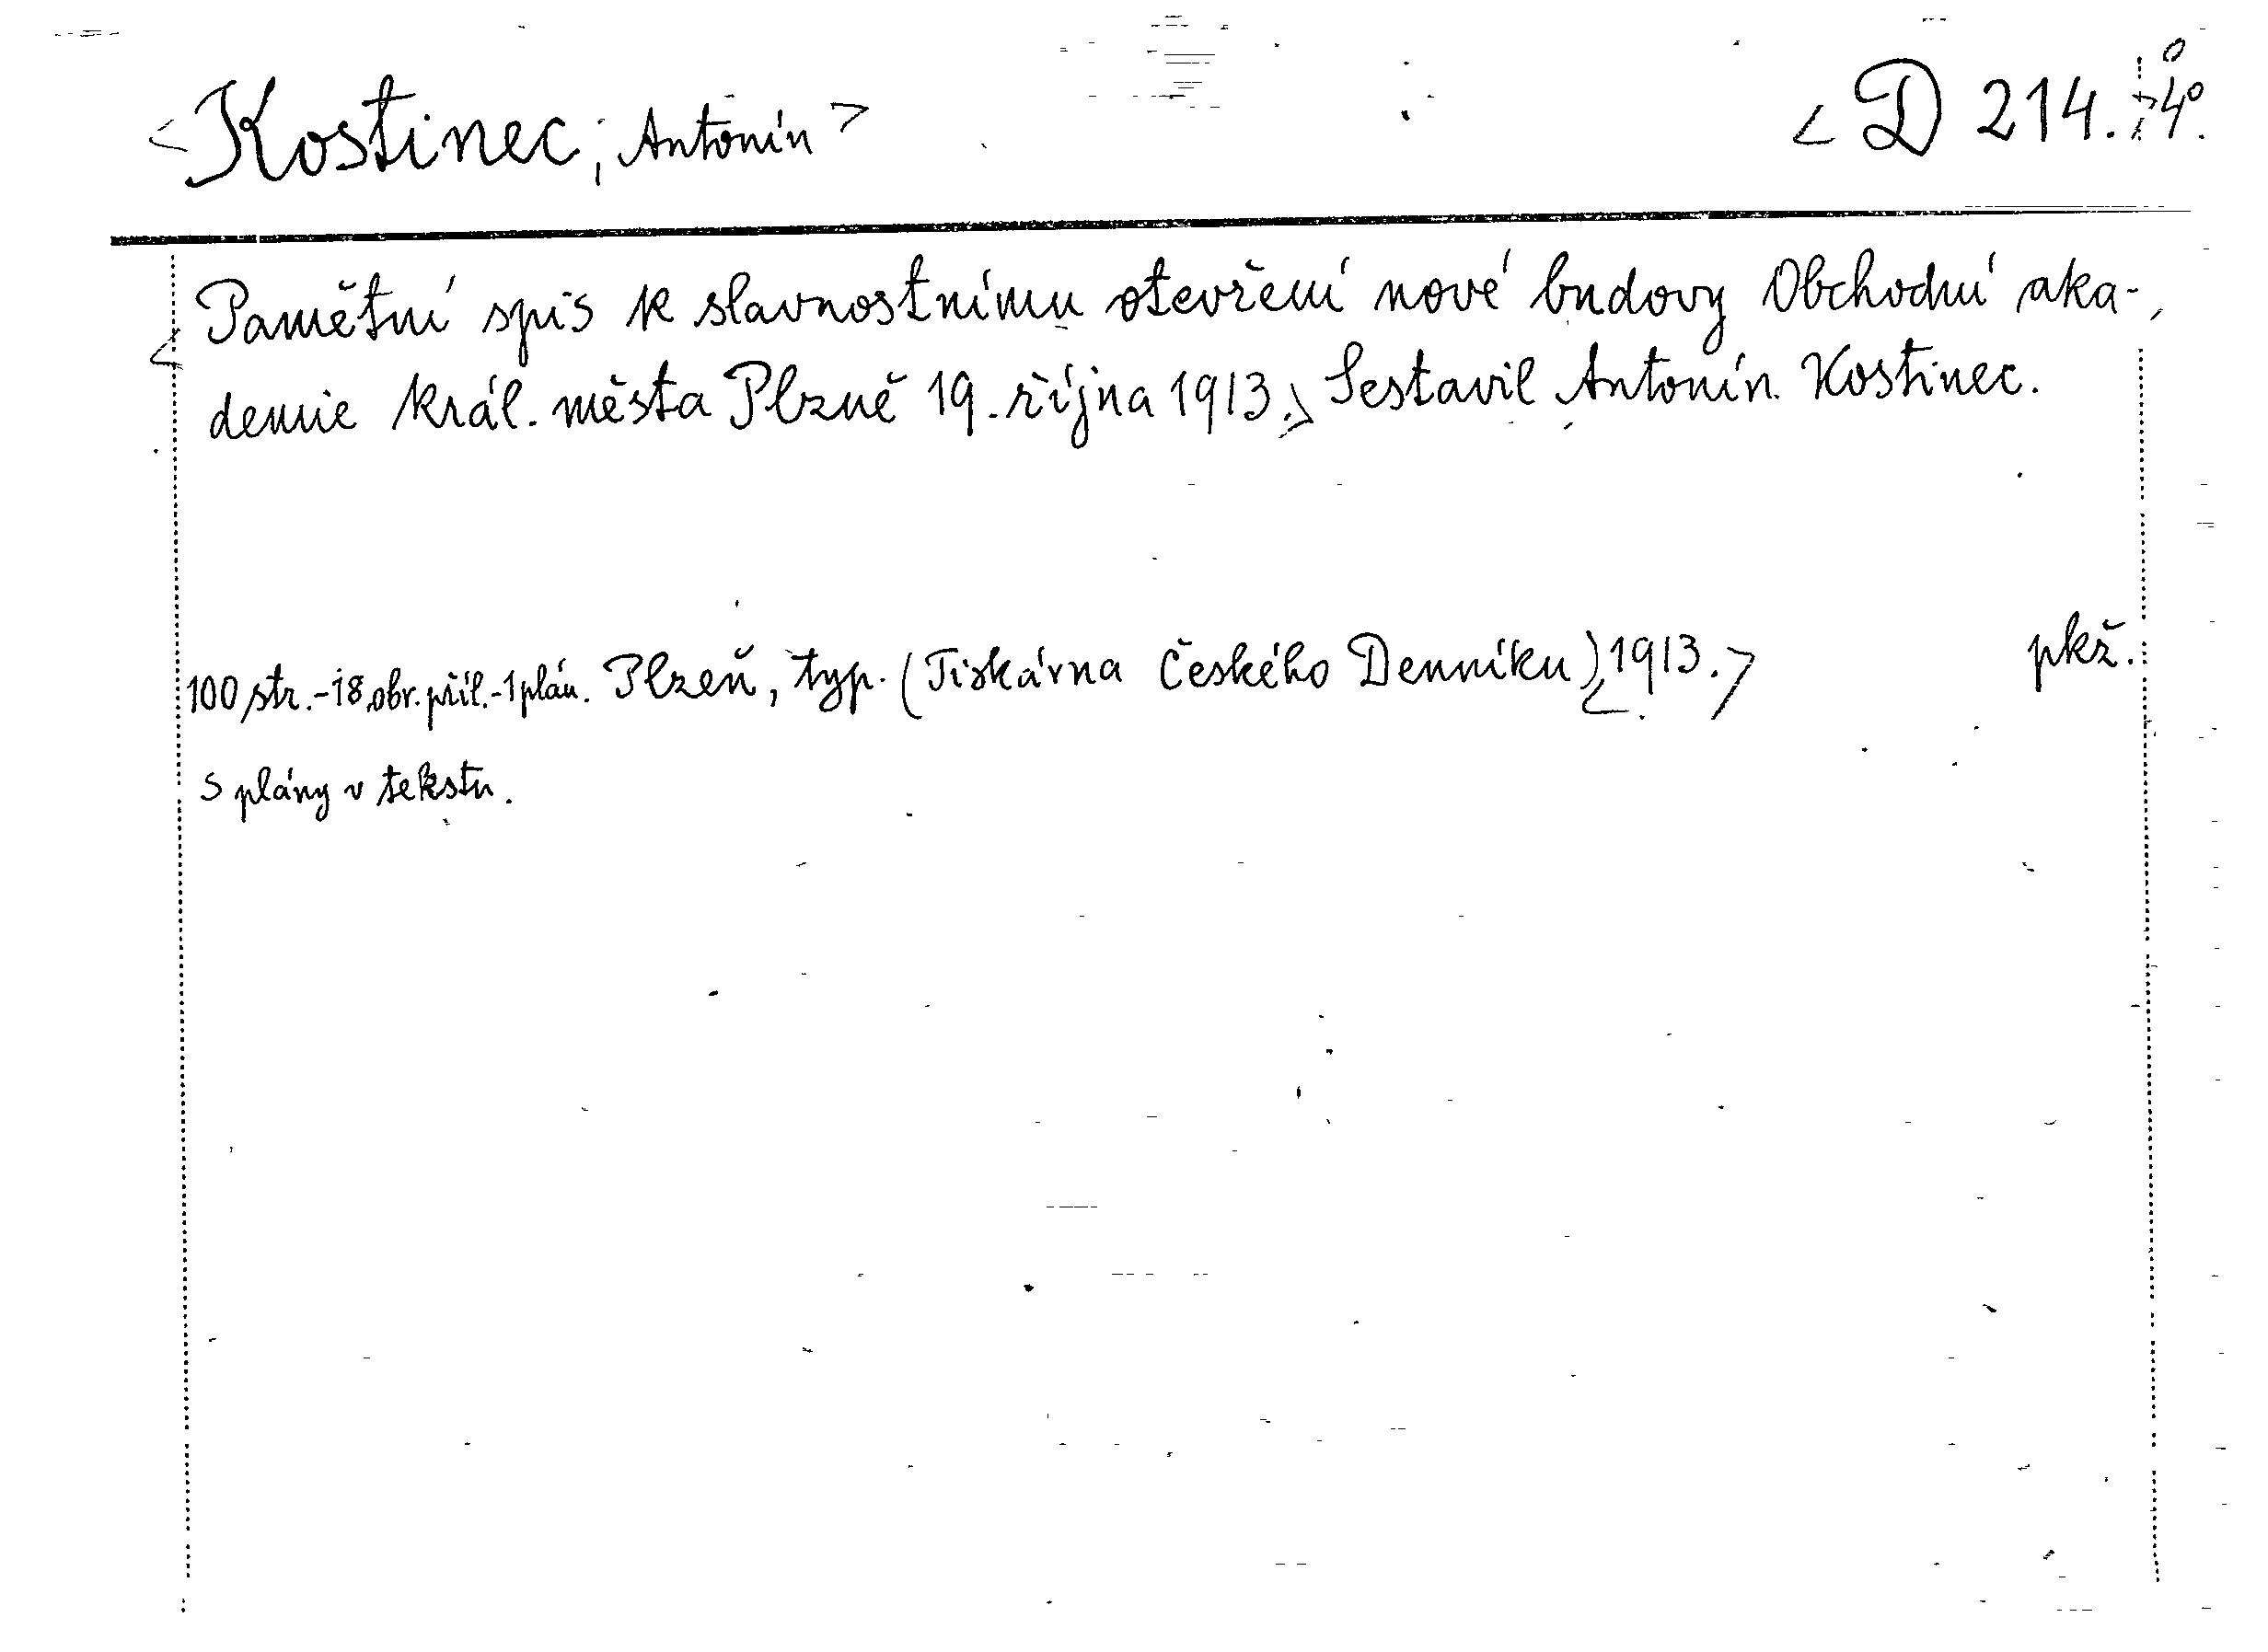 <Kostinec, Antonín> <D 214.>4°.
<Pamětní spis k slavnostnímu otevření nové budovy Obchodní aka-
demie král. města Plzně 19. října 1913.> Sestavil Antonín Kostinec.
100 str.-18 obr. příl.-1 plán. Plzeň, typ. (Tiskárna Českého Denníku) <1913.> pkž.
S plány v tekstu.